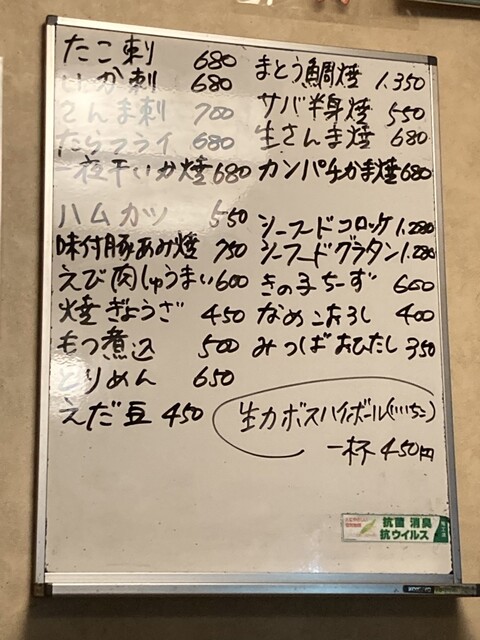 たこ刺 680
いか刺 680
さんま刺 700
たらフライ 680
一夜干いか焼 680
ハムカツ 550
味付豚あみ焼 750
えび肉しゅうまい 600
焼ぎょうざ 450
もつ煮込 500
とりめん 650
えだ豆 450
まとう鯛焼 1,350
サバ半身焼 550
生さんま焼 680
カンパチかま焼 680
シーフードコロッケ 1,280
シーフードグラタン 1,280
きの子ちーず 600
なめこおろし 400
みつばおひたし 350
生カボスハイボール(いいちこ)
一杯 450円
抗菌 消臭
抗ウイルス